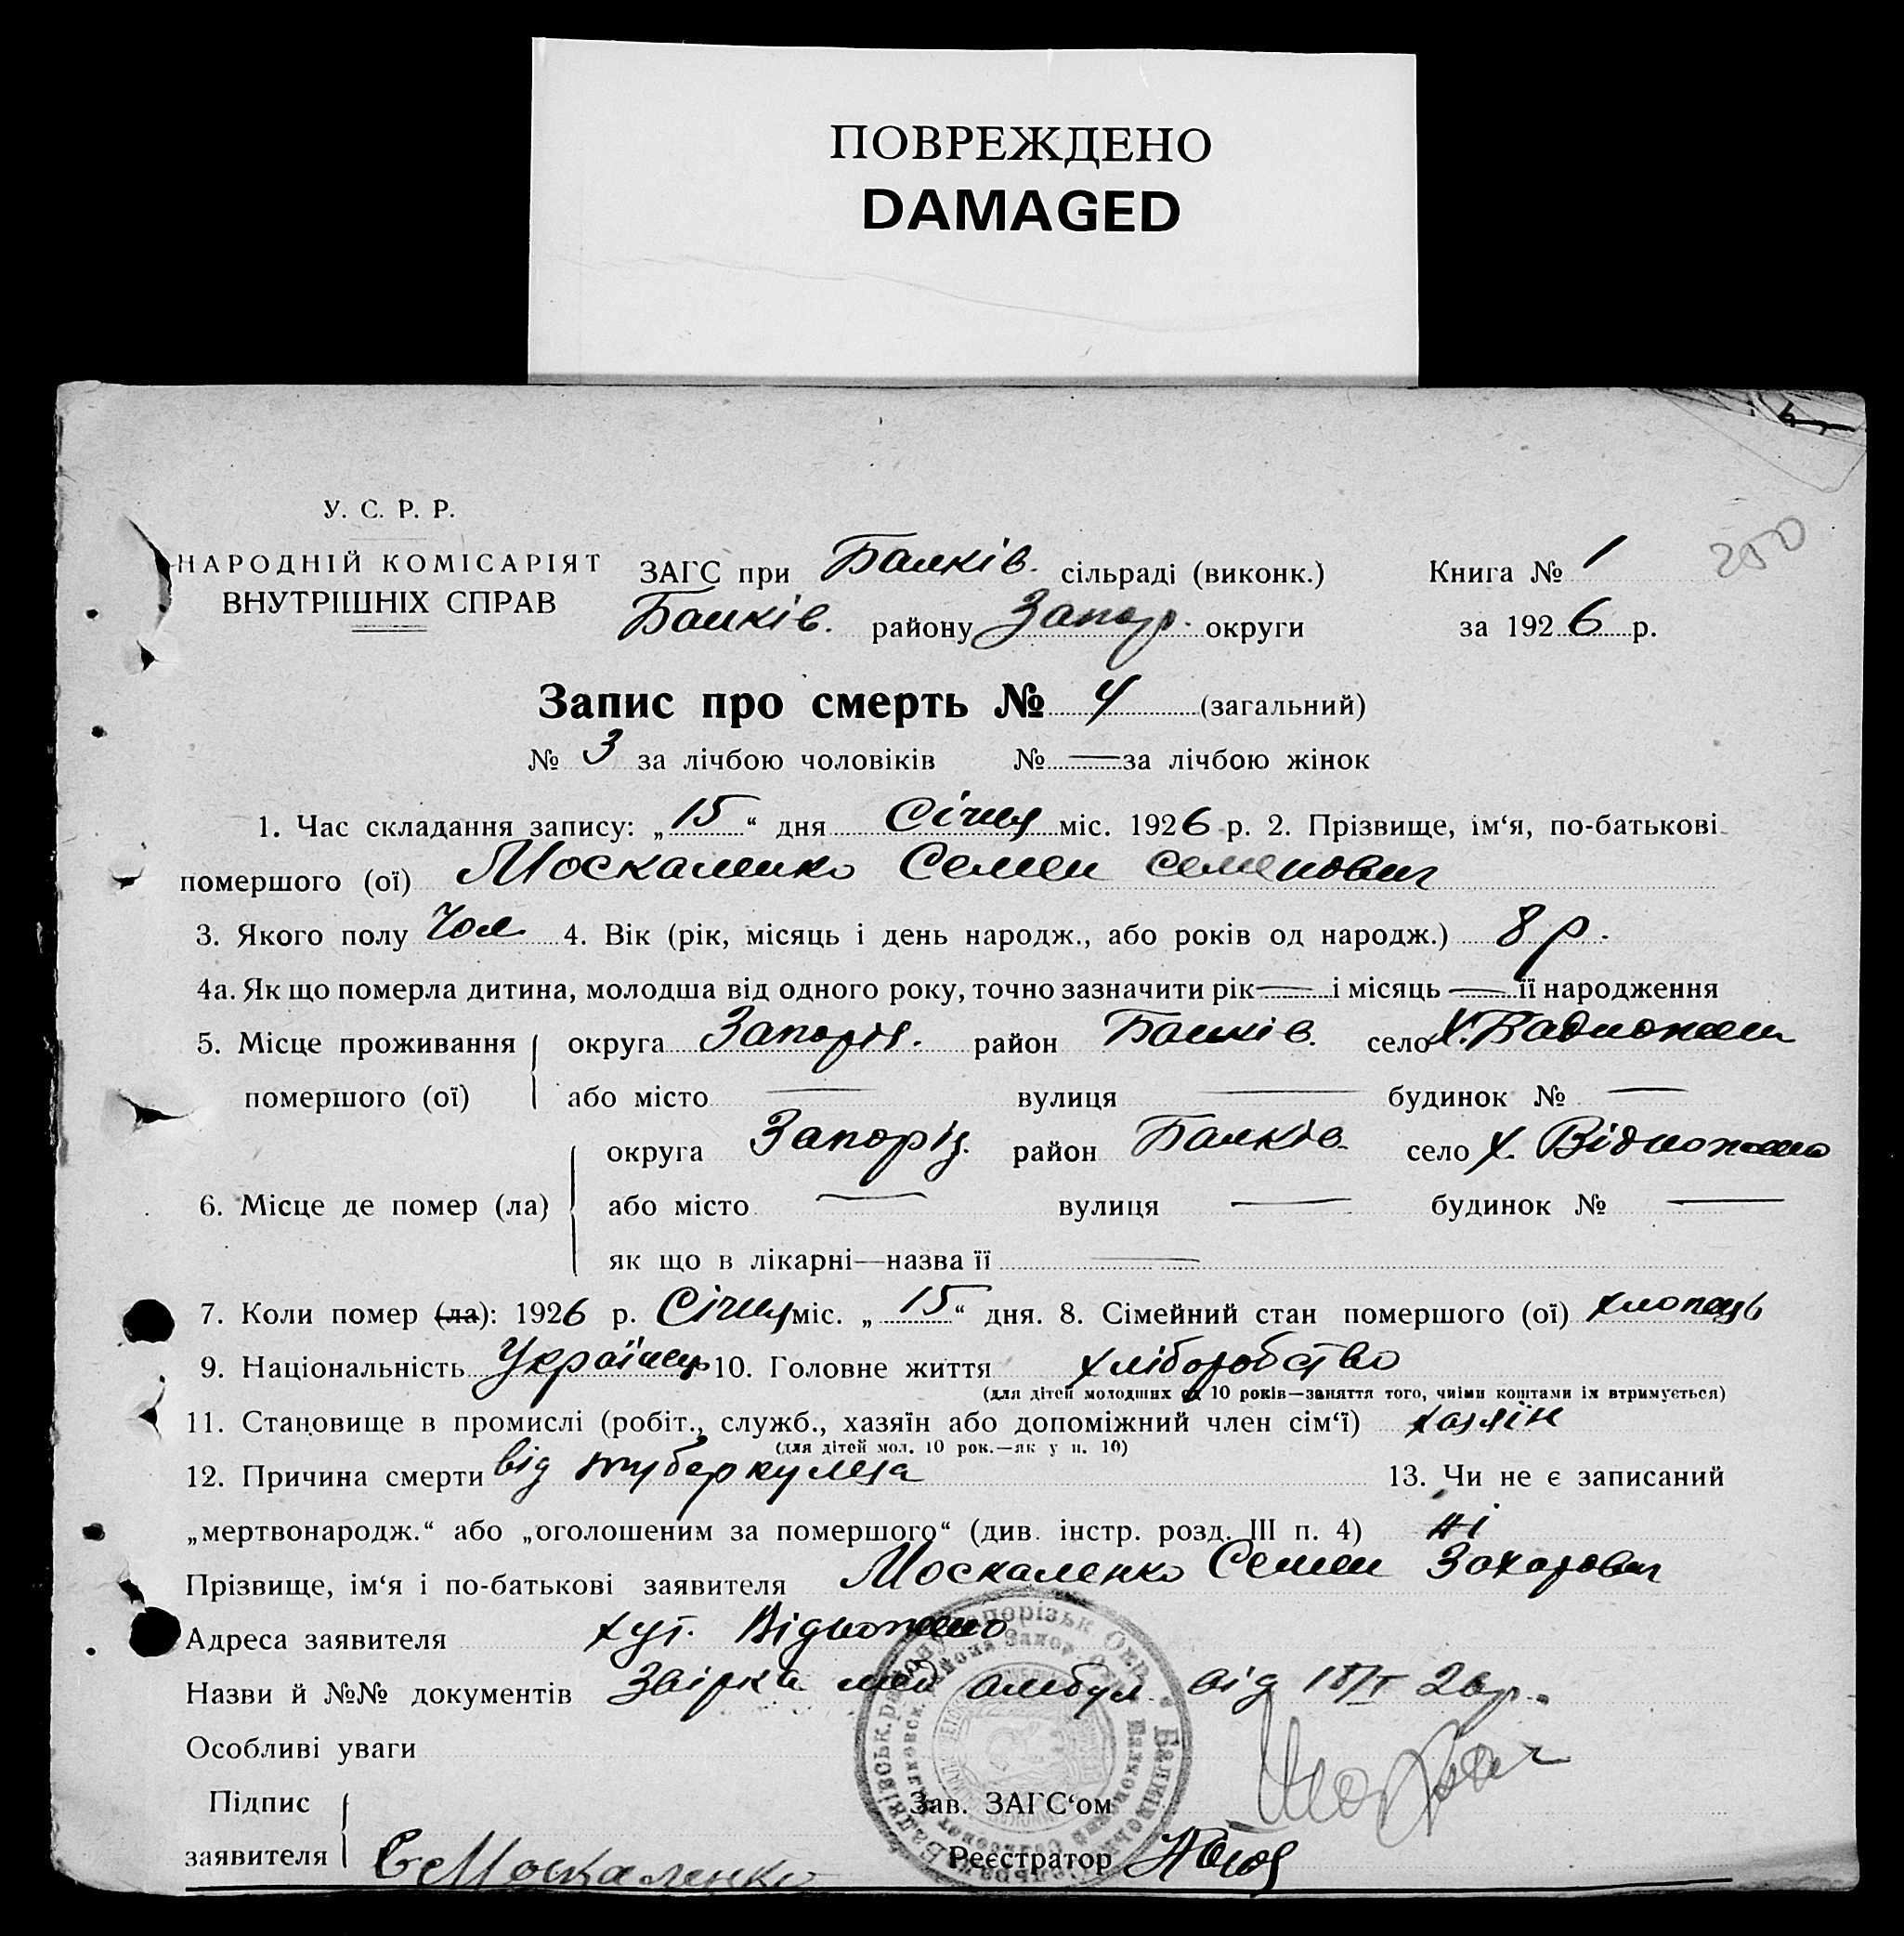 ПОВРЕЖДЕНО
DAMAGED
250
У. С. Р. Р.
НАРОДНІЙ КОМІСАРІЯТ
ВНУТРІШНІХ СПРАВ
ЗАГС при Балків. сільраді (виконк.) Книга № 1
Балків. району Запор. округи за 1926 р.
Запис про смерть № 4 (загальний)
№ 3 за лічбою чоловіків № — за лічбою жінок
1. Час складання запису: „15“ дня Січня міс. 1926 р. 2. Прізвище, ім‘я, по-батькові
помершого (ої) Москаленко Семен Семенович
3. Якого полу Чол. 4. Вік (рік, місяць і день народж., або років од народж.) 8 р.
4а. Як що померла дитина, молодша від одного року, точно зазначити рік — і місяць — її народження
5. Місце проживання округа Запоріз. район Балків. село х.
помершого (ої) або місто — вулиця — будинок № —
округа Запоріз. район Балків. село х.
6. Місце де помер (ла) або місто — вулиця — будинок № —
як що в лікарні—назва її —
7. Коли помер (ла): 1926 р. Січня міс. „15“ дня. 8. Сімейний стан помершого (ої) хлопець
9. Національність Українець 10. Головне життя хліборобство
(для дітей молодших од 10 років—заняття того, чиїми коштами їх втримується)
11. Становище в промислі (робіт., служб., хазяїн або допоміжний член сім‘ї) хазяїн
(для дітей мол. 10 рок.—як у п. 10)
12. Причина смерти від туберкульоза 13. Чи не є записаний
„мертвонародж.“ або „оголошеним за помершого“ (див. інстр. розд. III п. 4) ні
Прізвище, ім‘я і по-батькові заявителя Москаленко Семен Захарович
Адреса заявителя хут.
Назви й №№ документів мед амбул. від 18/I 26 р.
Особливі уваги
Підпис
заявителя С Москаленко
Зав. ЗАГС‘ом
Реєстратор